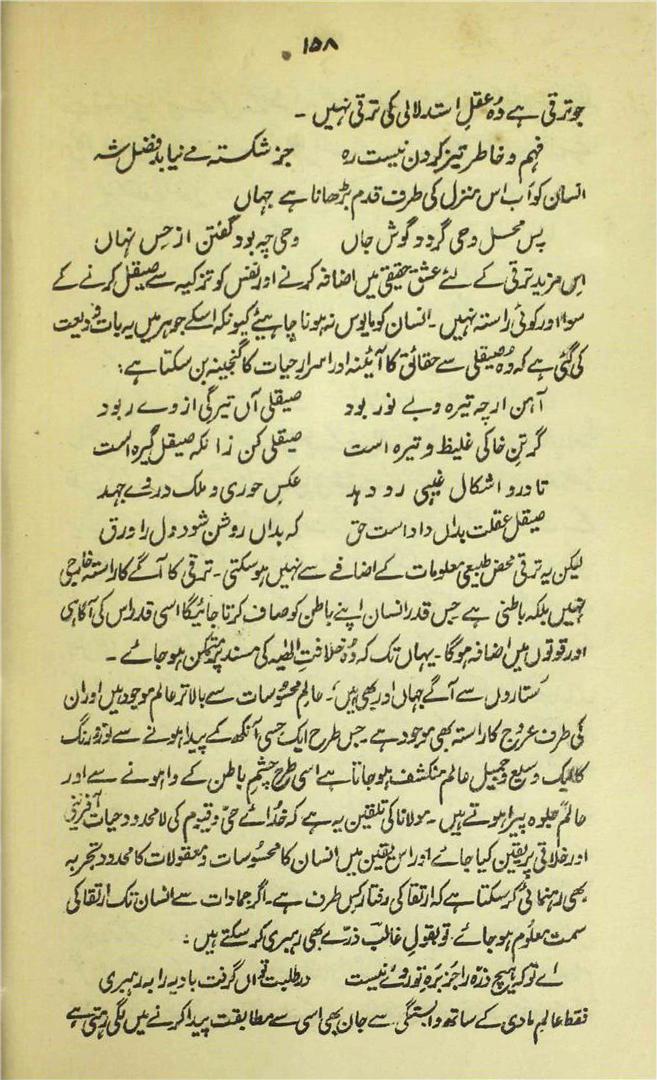 ۱۵۸
جو ترقی ہے وُہ عقلِ استدلالی کی ترقی نہیں ۔
فہم و خاطر تیز کردن نیست رہ جز شکستہ مے نیابد فضل شہ
انسان کو اب اس منزل کی طرف قدم بڑھانا ہے جہاں
پس محل وحی گردد گوش جاں وحی چہ بود گفتن از حِس نہاں
اِس مزید ترقی کے لئے عشق حقیقی میں اضافہ کرنے اور نفس کو تزکیہ سے صیقل کرنے کے
سوا اور کوئی راستہ نہیں ۔ انسان کو مایوس نہ ہونا چاہیئے کیونکہ اسکے جوہر میں یہ بات ودیعت
کی گئی ہے کہ وُہ صیقلی سے حقائق کا آئینہ اور اسرارِ حیات کا گنجینہ بن سکتا ہے :
آہن ارچہ تیرہ و بے نور بود صیقلی آں تیرگی از وے ربود
گر تنِ خاکی غلیظ و تیرہ است صیقلی کن زانکہ صیقل گیرہ است
تا درو اشکال غیبی رو دہد عکس حوری و ملک در وے جہد
صیقل عقلت بداں داد است حق کہ بداں روشن شود دل را ورق
لیکن یہ ترقی محض طبیعی معلومات کے اضافے سے نہیں ہو سکتی ۔ ترقی کا آگے کا راستہ خارجی
نہیں بلکہ باطنی ہے جس قدر انسان اپنے باطن کو صاف کرتا جائیگا اسی قدر اس کی آگاہی
اور قوتوں میں اضافہ ہوگا ۔ یہاں تک کہ وُہ خلافتِ الٰہیہ کی مسند پر متمکن ہو جائے ۔
ستاروں سے آگے جہاں اور بھی ہیں ۔ عالمِ محسُوسات سے بالاتر عالم موجود ہیں اور ان
کی طرف عرُوج کا راستہ بھی موجود ہے ۔ جس طرح ایک حسی آنکھ کے پیدا ہونے سے نُور و رنگ
کا ایک وسیع و جمیل عالم منکشف ہو جاتا ہے اسی طرح چشمِ باطن کے وا ہونے سے اور
عالم جلوہ پیرا ہوتے ہیں ۔ مولانا کی تلقین یہ ہے کہ خُدائے حیّ و قیوم کی لامحدود حیات آفرینی
اور خلاقی پر یقین کیا جائے اور اس یقین میں انسان کا محسُوسات و معقولات کا محدود تجربہ
بھی رہنمائی کر سکتا ہے کہ ارتقا کی رفتار کِس طرف ہے ۔ اگر جمادات سے انسان تک ارتقا کی
سمت معلُوم ہو جائے تو بقولِ غالبؔ ذرّے بھی رہبری کر سکتے ہیں :
اے تو کہ ہیچ ذرّہ را جُز برہِ تو روئے نیست در طلبت تواں گرفت بادیہ را بہ رہبری
فقط عالمِ مادی کے ساتھ وابستگی سے جان بھی اسی سے مطابقت پیدا کرنے میں لگی رہتی ہے